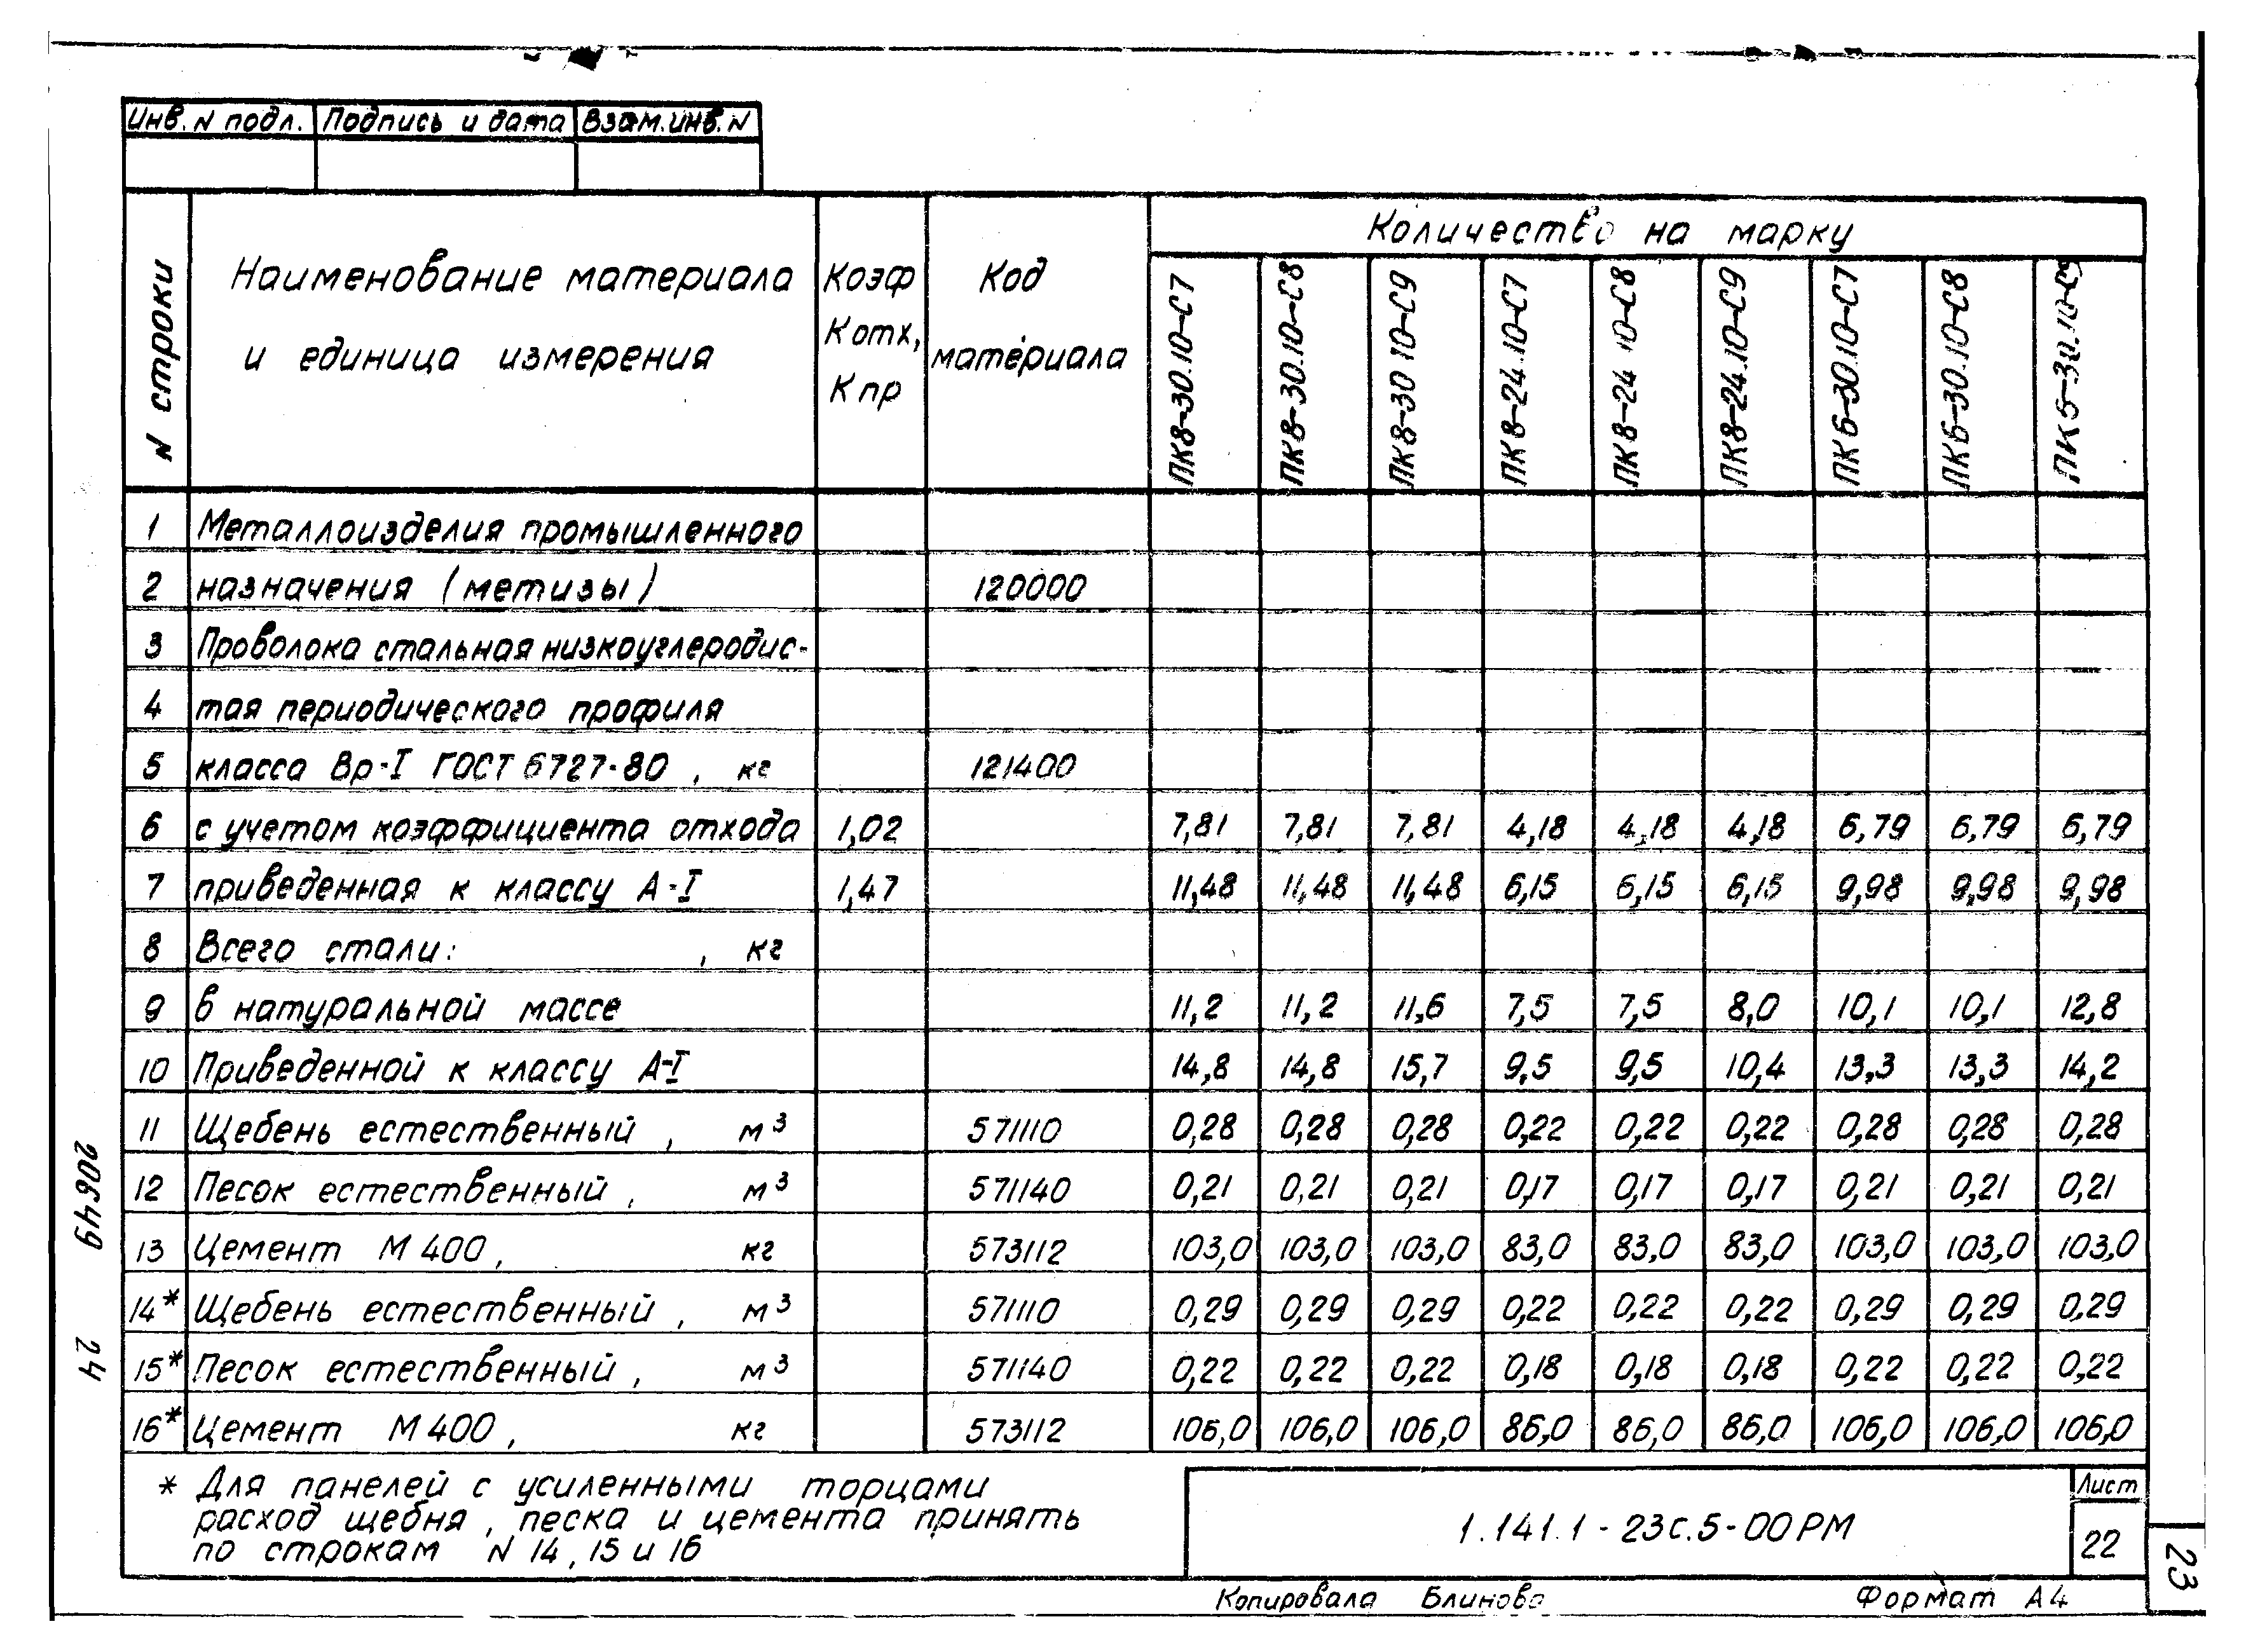 Инв. N подл. Подпись и дата Взам. инв. N
N строки Наименование материала и единица измерения Коэф Котх, Кпр Код материала Количество на марку
ПК8-30.10-С7 ПК8-30.10-С8 ПК8-30 10-С9 ПК8-24.10-С7 ПК8-24 10-С8 ПК8-24.10-С9 ПК6-30.10-С7 ПК6-30.10-С8 ПК6-30.10-С9
1 Металлоизделия промышленного
2 назначения (метизы) 120000
3 Проволока стальная низкоуглеродис-
4 тая периодического профиля
5 класса Вр-I ГОСТ 6727-80, кг 121400
6 с учетом коэффициента отхода 1,02 7,81 7,81 7,81 4,18 4,18 4,18 6,79 6,79 6,79
7 приведенная к классу А-I 1,47 11,48 11,48 11,48 6,15 6,15 6,15 9,98 9,98 9,98
8 Всего стали: , кг
9 в натуральной массе 11,2 11,2 11,6 7,5 7,5 8,0 10,1 10,1 12,8
10 Приведенной к классу А-I 14,8 14,8 15,7 9,5 9,5 10,4 13,3 13,3 14,2
11 Щебень естественный, м³ 571110 0,28 0,28 0,28 0,22 0,22 0,22 0,28 0,28 0,28
12 Песок естественный, м³ 571140 0,21 0,21 0,21 0,17 0,17 0,17 0,21 0,21 0,21
13 Цемент М 400, кг 573112 103,0 103,0 103,0 83,0 83,0 83,0 103,0 103,0 103,0
14* Щебень естественный, м³ 571110 0,29 0,29 0,29 0,22 0,22 0,22 0,29 0,29 0,29
15* Песок естественный, м³ 571140 0,22 0,22 0,22 0,18 0,18 0,18 0,22 0,22 0,22
16* Цемент М 400, кг 573112 106,0 106,0 106,0 86,0 86,0 86,0 106,0 106,0 106,0
* Для панелей с усиленными торцами
расход щебня, песка и цемента принять
по строкам N 14, 15 и 16
1.141.1-23с.5-00РМ
Лист
22
Копировала Блинова Формат А4
23
20649 24